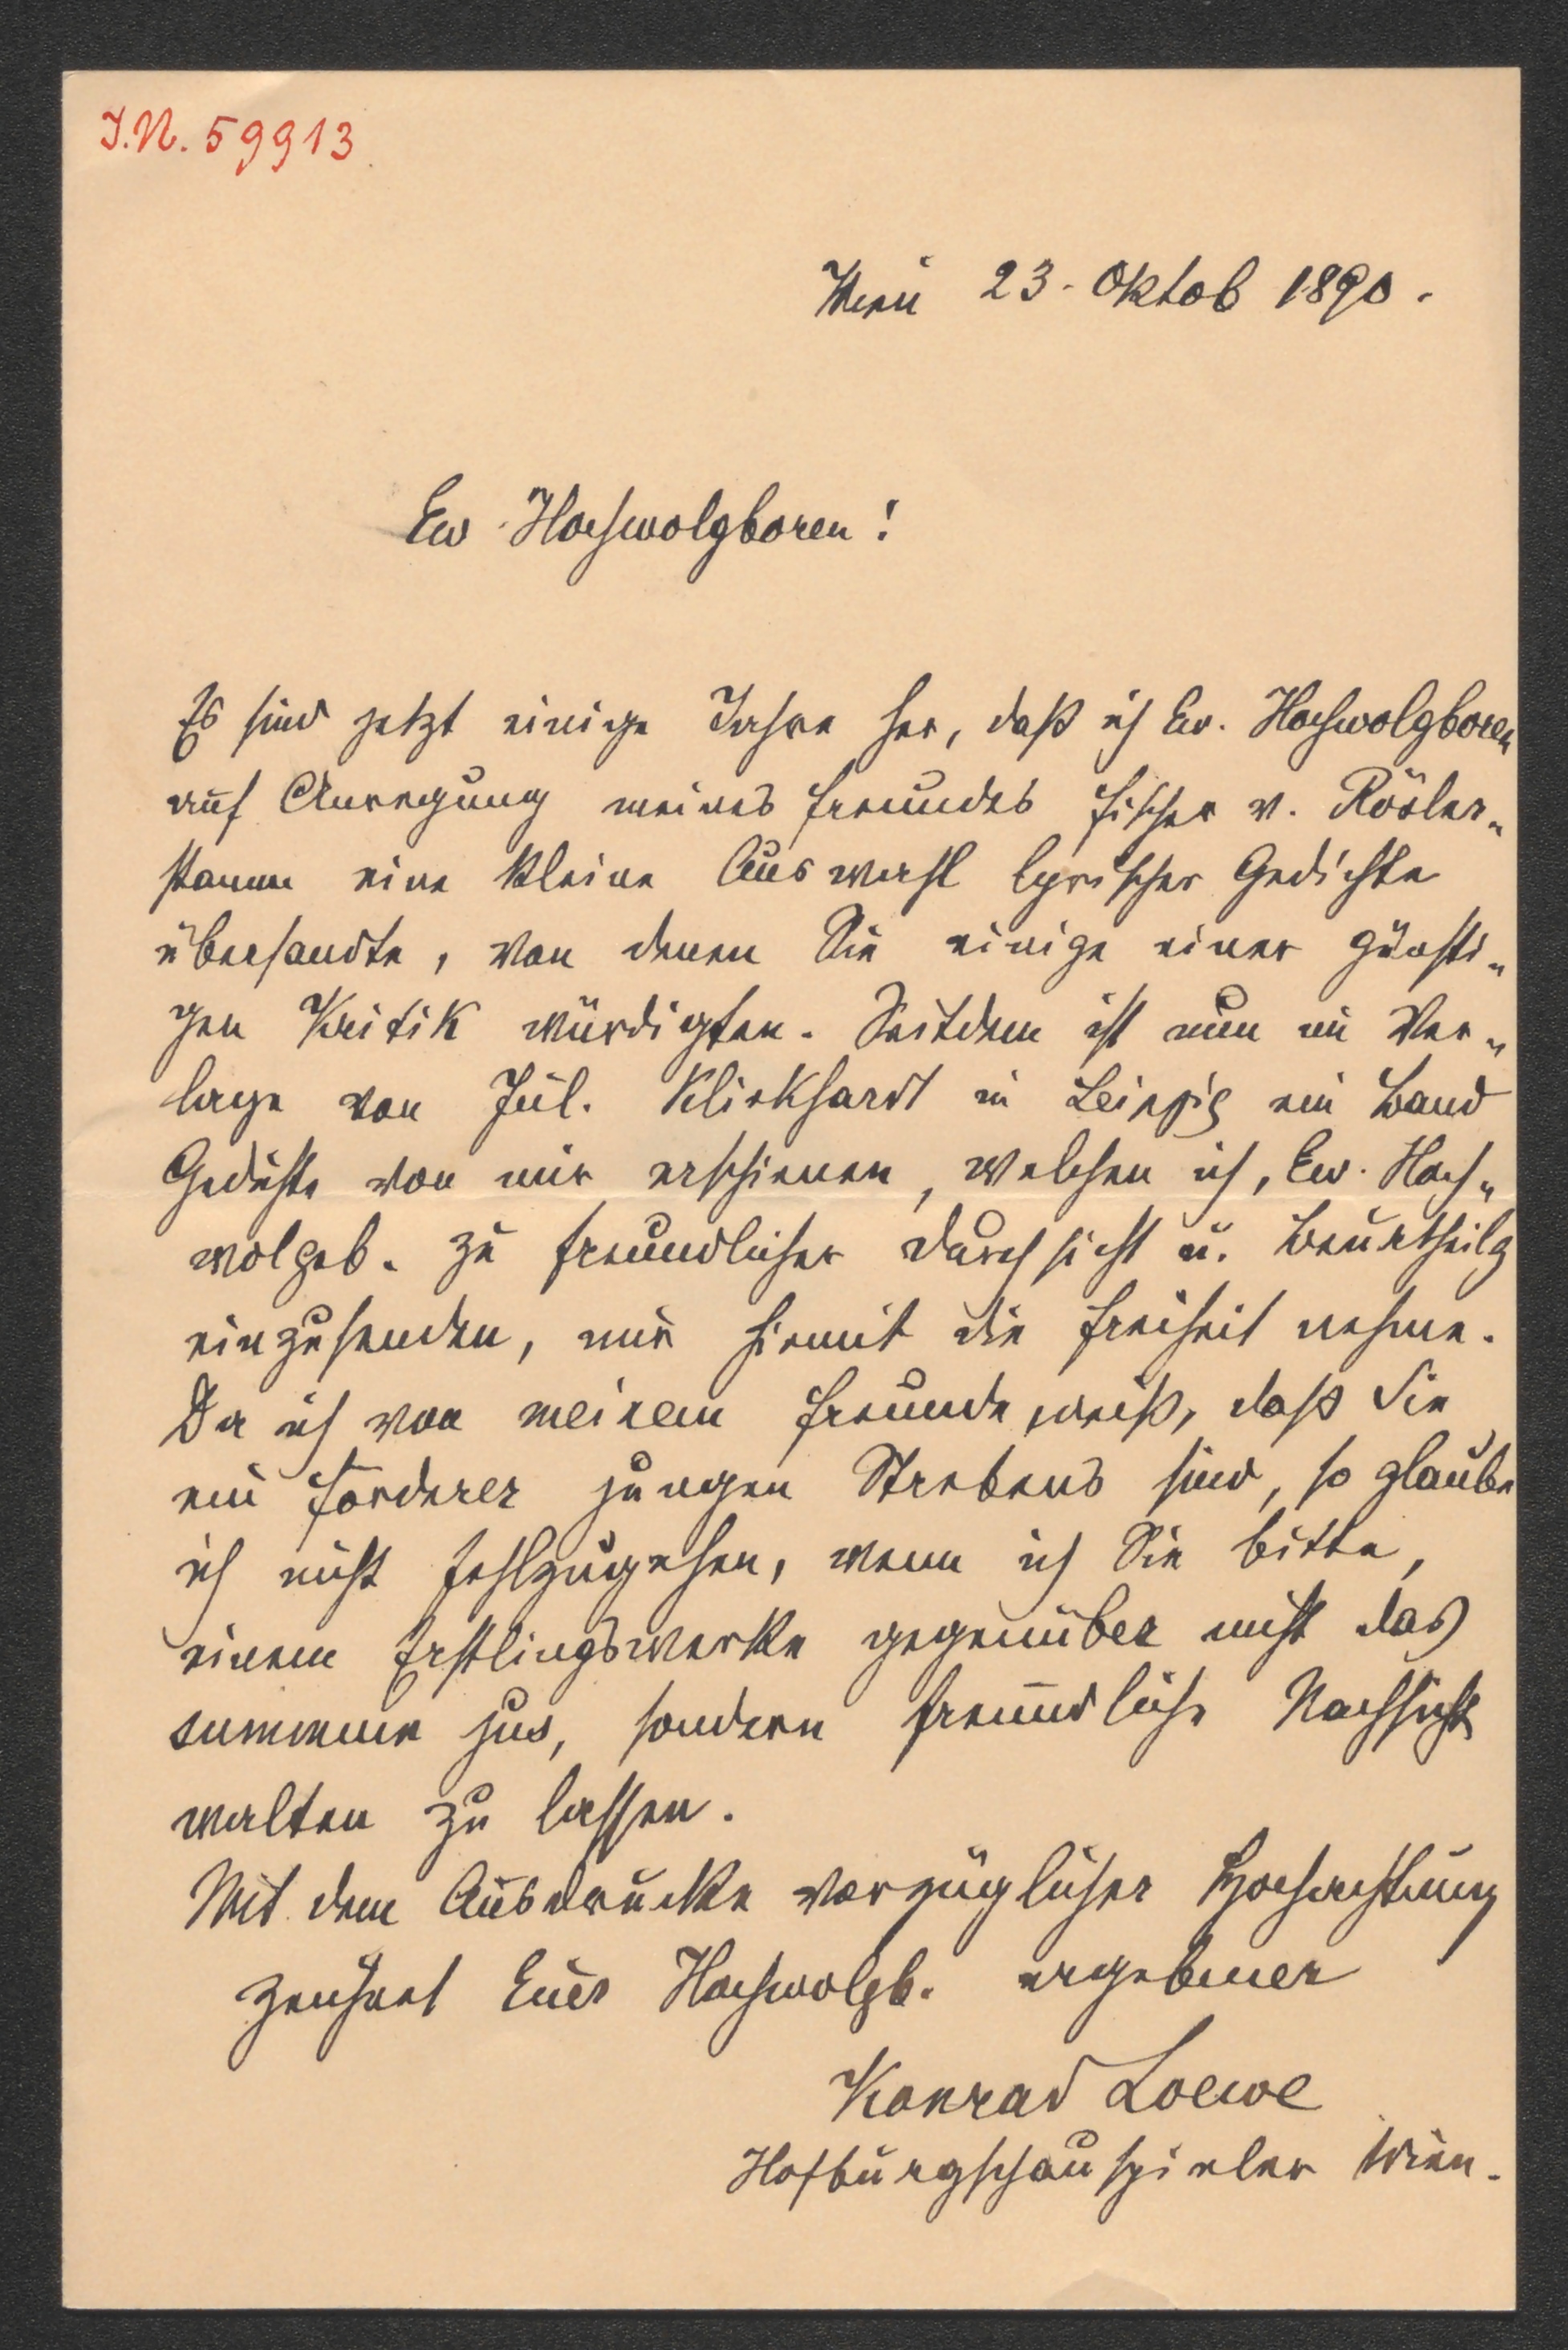 I.N. 59913
Wien 23. Oktob 1890.
Ew. Hochwolgboren!
Es sind jetzt einige Jahre her, daß ich Ew. Hochwolgboren
auf Anregung meines Freundes Fischer v. Rösler„
stamm eine kleine Auswahl lyrischer Gedichte
übersandte, von denen Sie einige einer günsti„
gen Kritik würdigten. Seitdem ist nun im Ver„
lage von Jul. Klinkhardt in Leipzig ein Band
Gedichte von mir erschienen, welchen ich, Ew. Hoch„
wolgeb. zu freundlicher Durchsicht u. Beurtheilg
einzusenden, mir hiemit die Freiheit nehme.
Da ich von meinem Freunde weiß, daß Sie
ein Förderer jungen Strebens sind, so glaube
ich nicht fehlzugehen, wenn ich Sie bitte,
einem Erstlingswerke gegenüber nicht das
summum jus, sondern freundliche Nachsicht
walten zu lassen.
Mit dem Ausdrucke vorzüglicher Hochachtung
zeichnet Euer Hochwolgb. ergebener
Konrad Loewe
Hofburgschauspieler Wien.